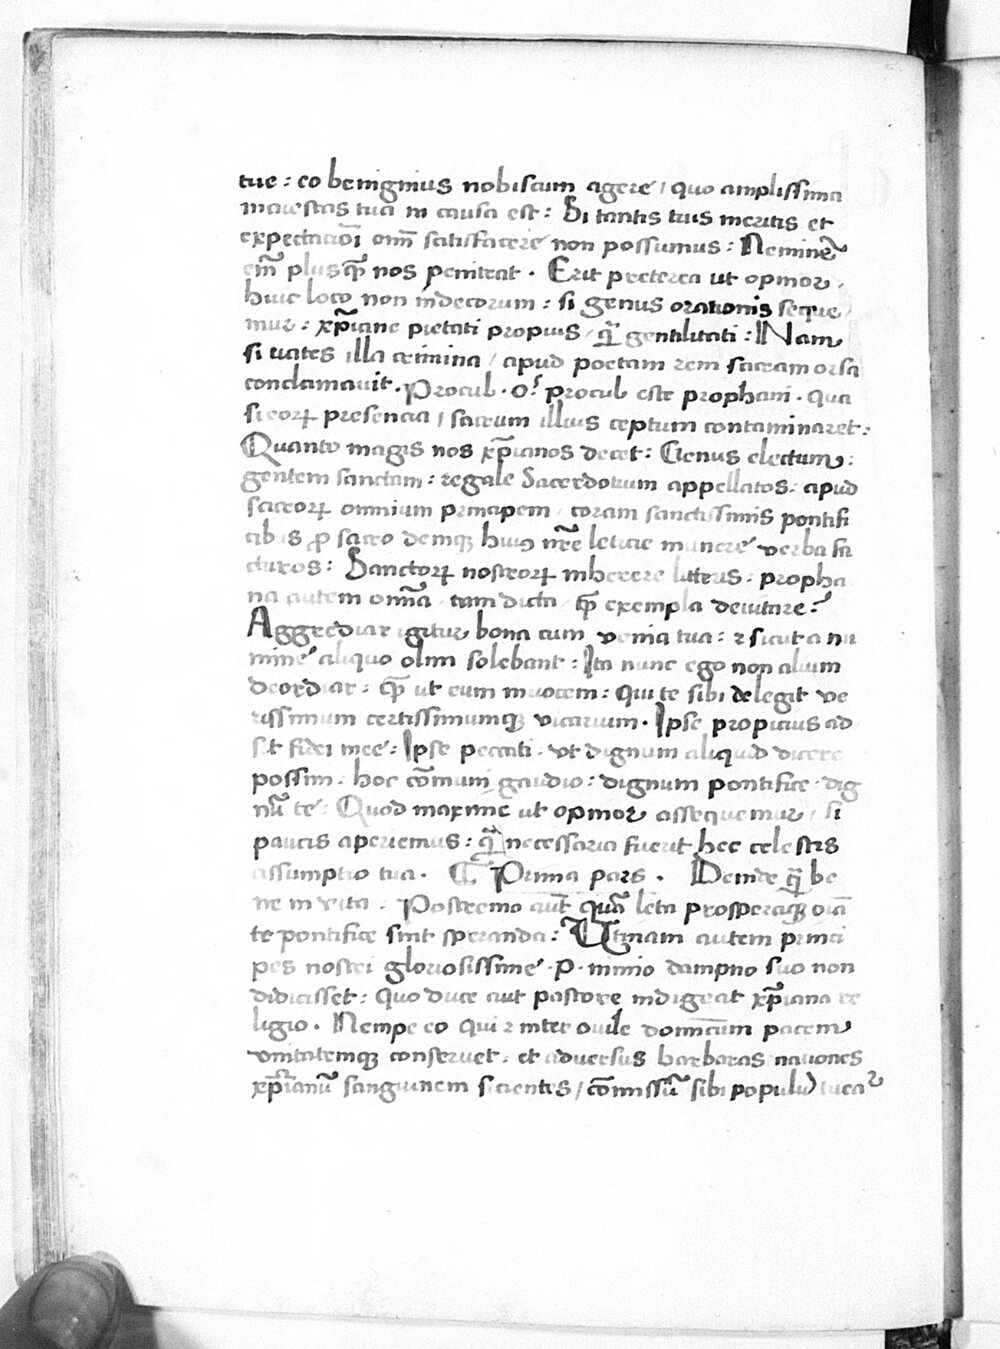 tue : eo benignius nobiscum agere / quo amplissima
maiestas tua in causa est : Si tantis tuis meritis et
expectacõi om̄ satisfacere non possumus : Neminē
em̄ plusq̃ nos peniteat . Erit preterea ut opinor .
huic loco non indecorum : si genus orationis seque
mur : xp̃iane pietati propius / q̃ gentilitati : Nam
si uates illa carmina / apud poetam rem sacram orsa
conclamauit . Procul . o . procul este prophani . Qua
si eoꝝ presencia / sacrum illius ceptum contaminaret :
Quanto magis nos xp̃ianos decet : Genus electum :
gentem sanctam : regale Sacerdotium appellatos : apud
sacroꝝ omnium principem / coram sanctissimis pontifi
cibus ꝓ sacro demq̨ huiꝰ nr̃e leticie munere verba fa
cturos : Sanctoꝝ nostroꝝ inherere literis : propha
na autem omnĩa / tam dicta / q̃ exempla deuitare .
Aggrediar igitur bona cum venia tua : ⁊ sicut a nu
mine aliquo olim solebant : Ita nunc ego non alium
deordiar : q̃ ut eum inuocem : qui te sibi delegit ve
rissimum certissimumq̨ vicarium . Ipse propicius ad
sit fidei mee : Ipse peccati . vt dignum aliquid dicere
possim . hoc cõmuni gaudio : dignum pontifice . dig
nũ te : Quod maxime ut opinor assequemur / si
paucis aperiemus : q̃ necessaria fuerit hec celestis
assumptio tua . ⁋ Prima pars . Deinde q̃ be
ne in vita . Postremo aut̃ quã leta prosperaq̨ oĩa
te pontifice sint speranda : Utinam autem princi
pes nostri gloriosissime . P . nimio dampno suo non
didicisset : quo duce aut pastore indigeat xp̃iana re
ligio . Nempe eo qui ⁊ inter ouile dominicum pacem
vnitatemq̨ conseruet : et aduersus barbaras nationes
xp̃ianũ sanguinem sicientes / cõmissũ sibi populũ tuea